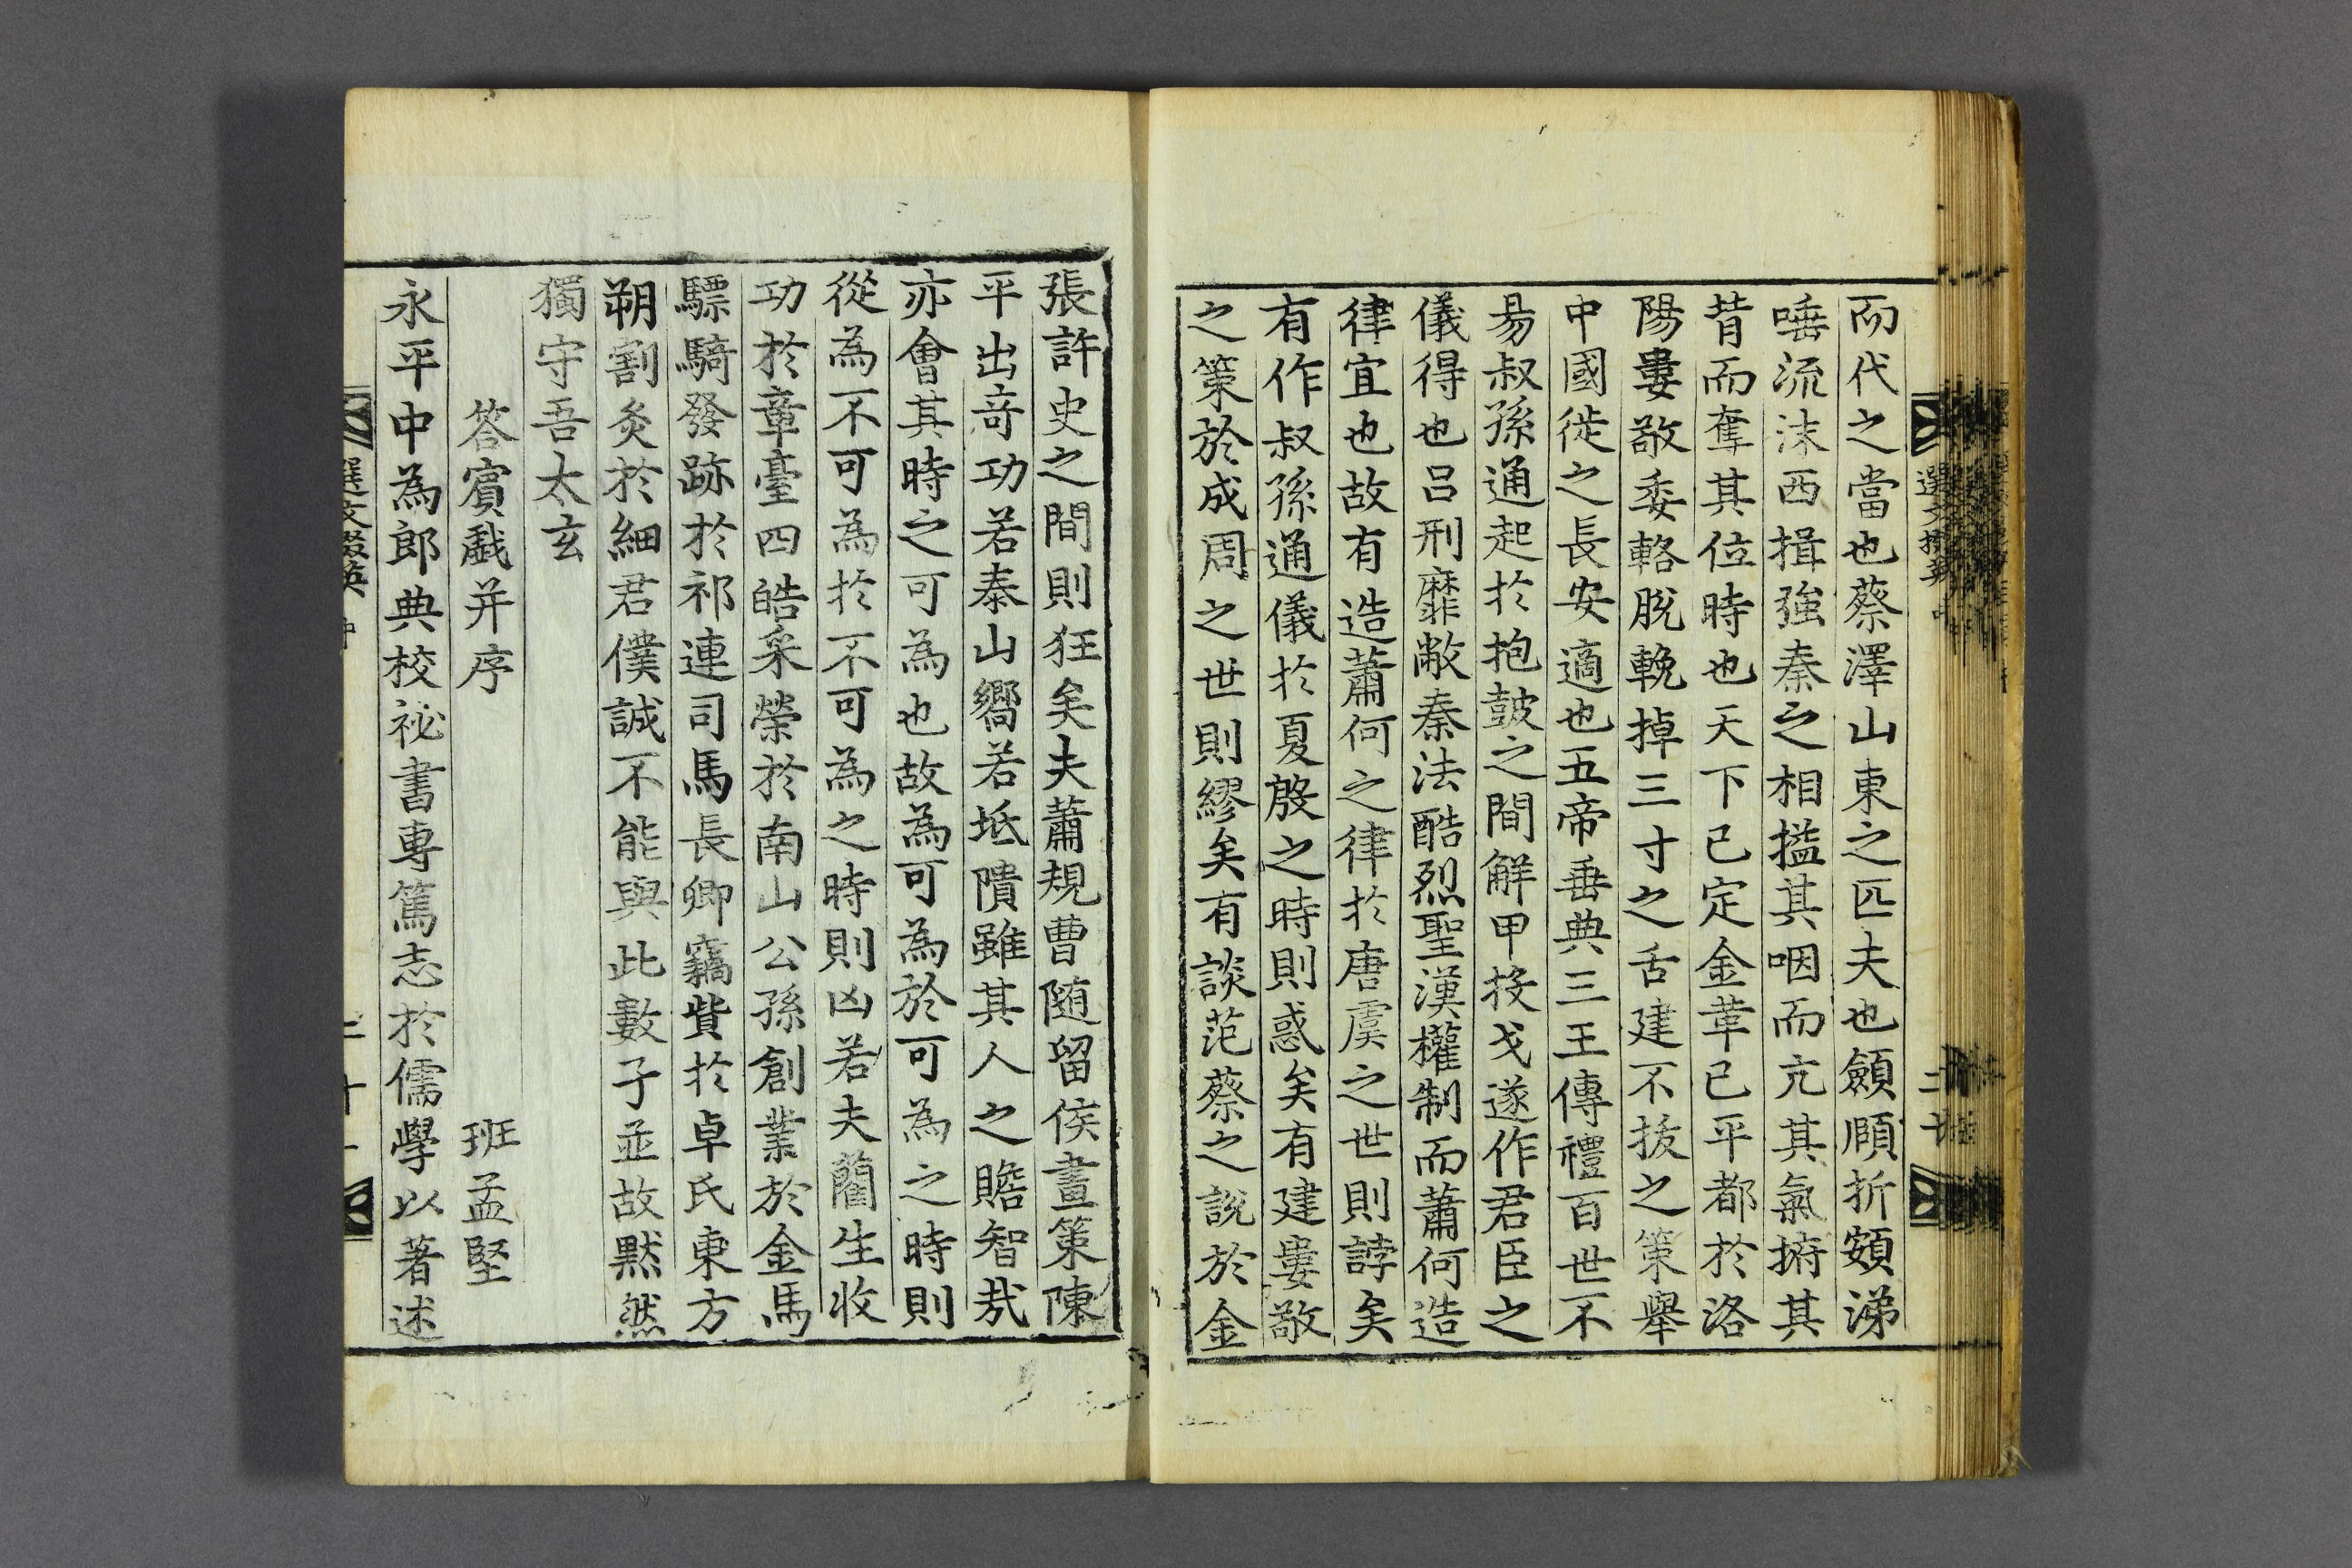 而代之當也蔡澤山東之匹夫也顩頤折頞涕
唾流沫西揖強秦之相搤其咽而亢其氣拊其
背而奪其位時也天下已定金革已平都於洛
陽婁敬委輅脫輓掉三寸之舌建不拔之策舉
中國徙之長安適也五帝垂典三王傳禮百世不
易叔孫通起於抱鼓之間解甲投戈遂作君臣之
儀得也呂刑靡敝秦法酷烈聖漢權制而蕭何造
律宜也故有造蕭何之律於唐虞之世則誖矣
有作叔孫通儀於夏殷之時則惑矣有建婁敬
之策於成周之世則繆矣有談范蔡之說於金
張許史之間則狂矣夫蕭規曹随留侯畫策陳
平出奇功若泰山嚮若坻隤雖其人之贍智哉
亦會其時之可為也故為可為於可為之時則
從為不可為於不可為之時則凶若夫藺生收
功於章臺四皓采榮於南山公孫創業於金馬
驃騎發跡於祁連司馬長卿竊貲於卓氏東方
朔割炙於細君僕誠不能與此數子並故默然
獨守吾太玄
答賓戲并序 班孟堅
永平中為郎典校祕書專篤志於儒學以著述